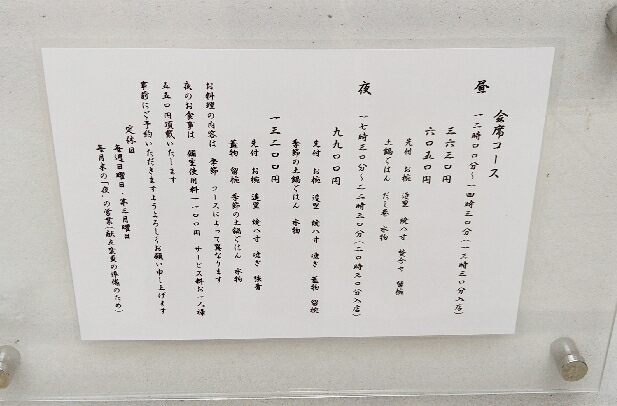 会席コース
昼
一二時〇〇分〜一四時三〇分(一三時三〇分入店)
三六三〇円
六〇五〇円
先付 お椀 造里 焼八寸 炊合せ 留椀
土鍋ごはん だし巻 水物
夜
一七時三〇分〜二二時三〇分(二〇時三〇分入店)
九九〇〇円
先付 お椀 造里 焼八寸 進ぎ 蓋物 留椀
季節の土鍋ごはん 水物
一三二〇〇円
先付 お椀 造里 焼八寸 進ぎ 強肴
蓋物 留椀 季節の土鍋ごはん 水物
お料理の内容は 季節 コースによって異なります
夜のお食事は 個室使用料一一〇〇円 サービス料お一人様
五五〇円頂戴いたします
事前にご予約いただきますようよろしくお願い申し上げます
定休日
毎週日曜日・第三月曜日
毎月末の「夜」の営業(献立変更の準備のため)